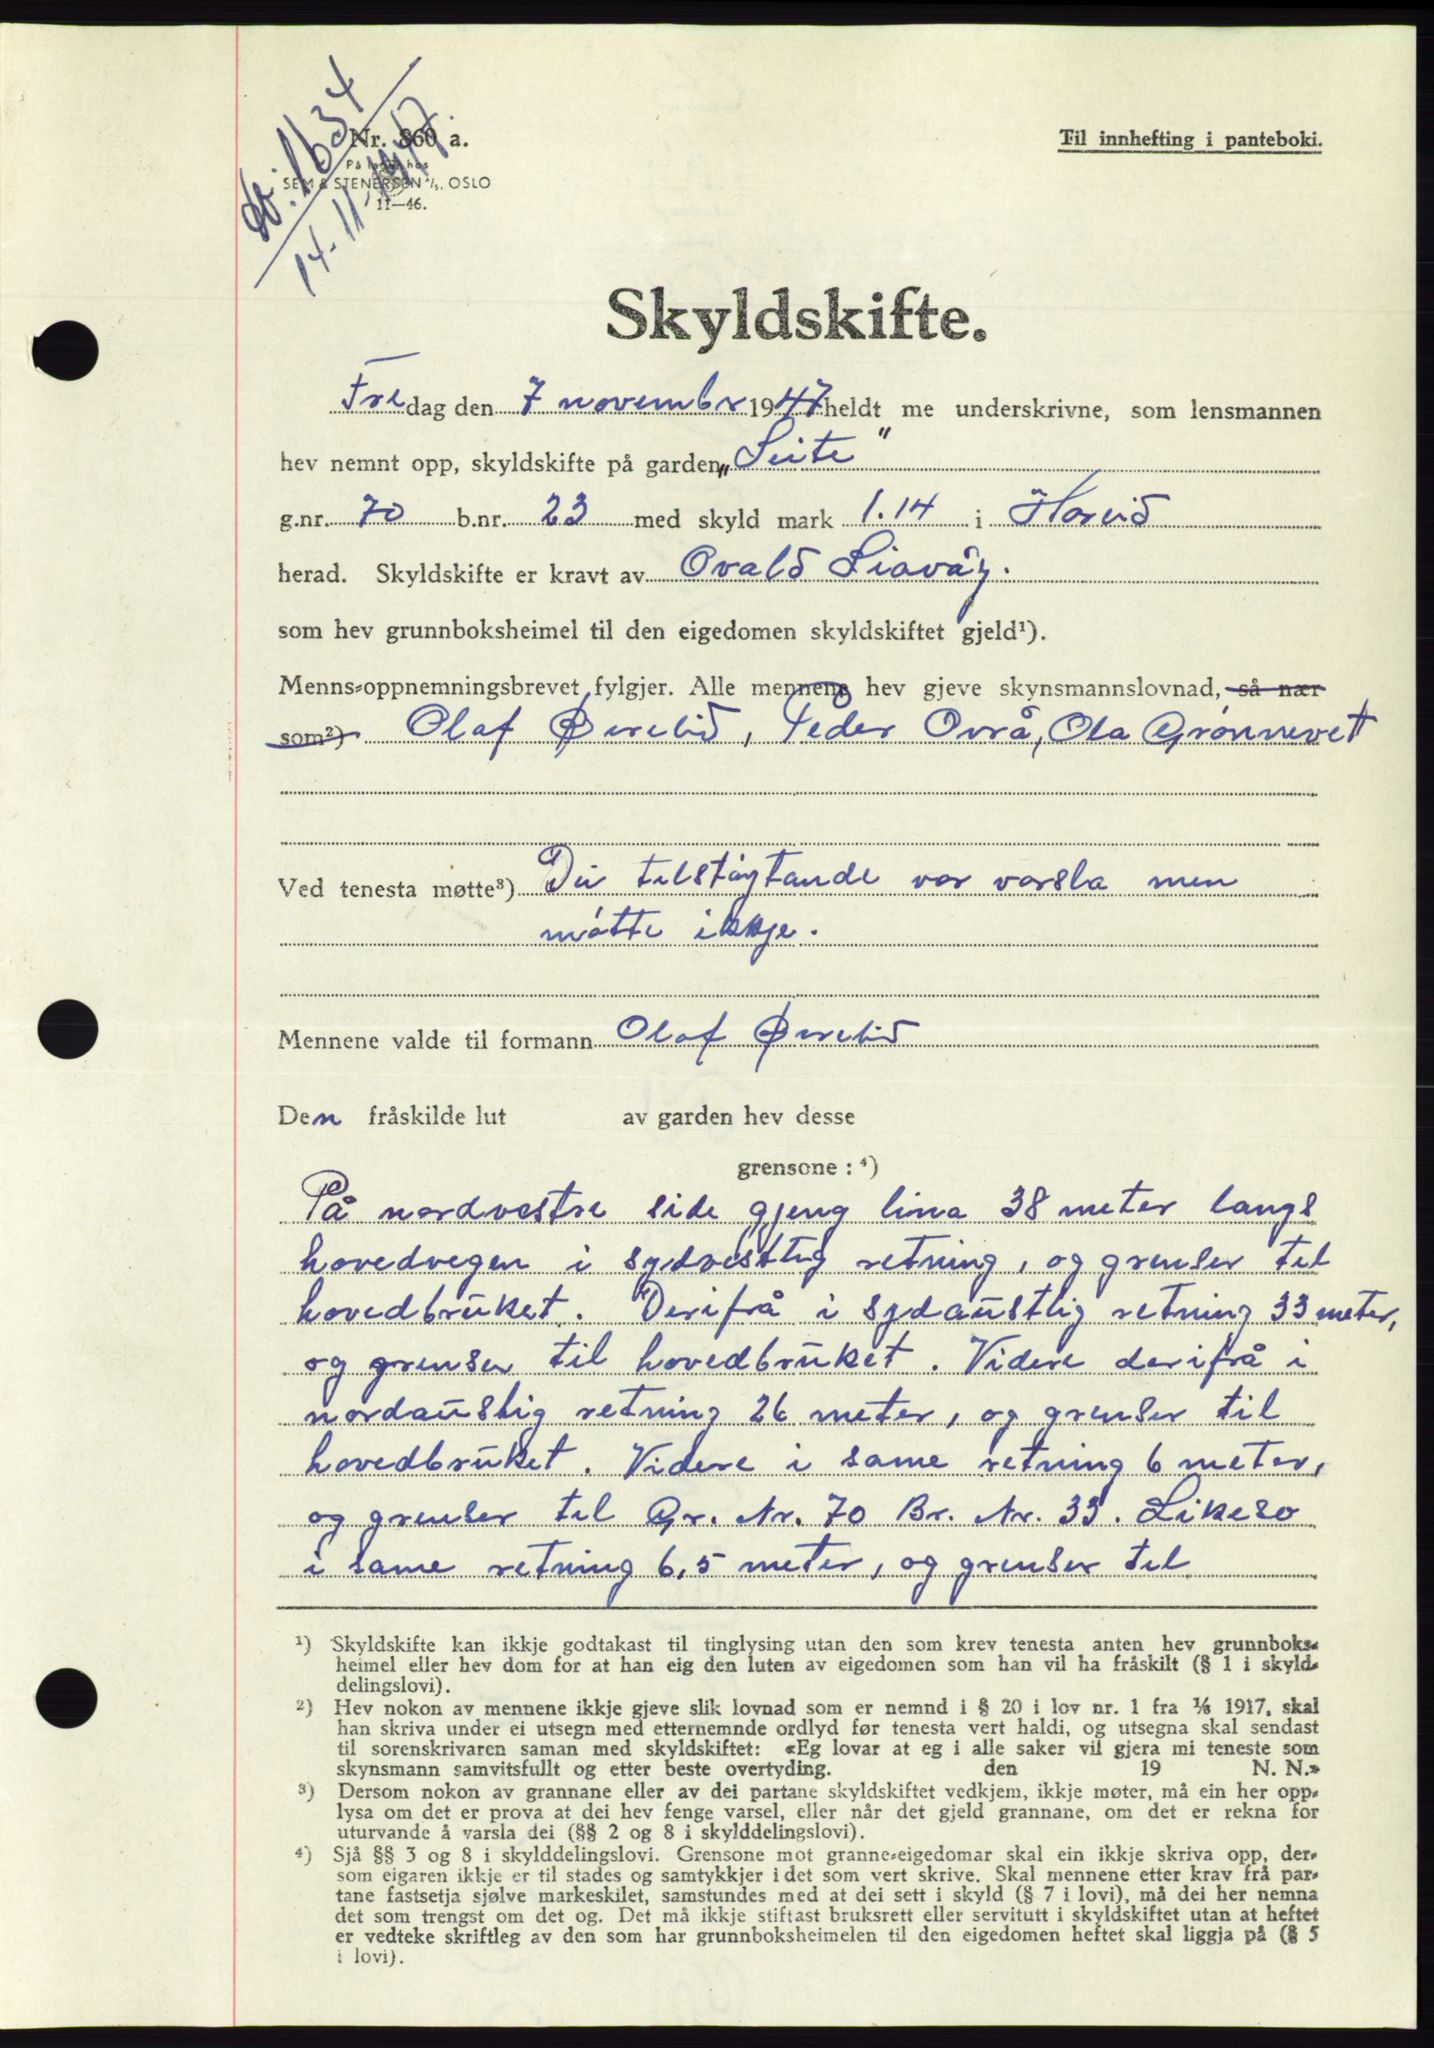 Db: 1634
14-11-1947.
Nr. 860 a.
På lager hos
SEM & STENERSEN A/S, OSLO
11—46.
Til innhefting i panteboki.
Skyldskifte.
Fredag den 7 novembr 1947 heldt me underskrivne, som lensmannen
hev nemnt opp, skyldskifte på garden „Leite"
g.nr. 70 b.nr. 23 med skyld mark 1.14 i Hareid
herad. Skyldskifte er kravt av Ovald Liavåg.
som hev grunnboksheimel til den eigedomen skyldskiftet gjeld¹).
Menns-oppnemningsbrevet fylgjer. Alle mennene hev gjeve skynsmannslovnad, så nær
som²) Olaf Øvrelid, Peder Ovrå, Ola Grønnevet
Ved tenesta møtte³) Dei tilstøytande var varsla men
møtte ikkje.
Mennene valde til formann Olaf Øvrelid
Den fråskilde lut av garden hev desse
grensone : ⁴)
På nordvestre side gjeng lina 38 meter langs
hovedvegen i sydvestlig retning, og grenser til
hovedbruket. Derifrå i sydaustlig retning 33 meter,
og grenser til hovedbruket. Videre derifrå i
nordauslig retning 26 meter, og grenser til
hovedbruket. Videre i same retning 6 meter,
og grenser til Gr. Nr. 70 Br. Nr. 33. Likeso
i same retning 6,5 meter, og grenser til
¹) Skyldskifte kan ikkje godtakast til tinglysing utan den som krev tenesta anten hev grunnboks-
heimel eller hev dom for at han eig den luten av eigedomen som han vil ha fråskilt (§ 1 i skyld-
delingslovi).
²) Hev nokon av mennene ikkje gjeve slik lovnad som er nemnd i § 20 i lov nr. 1 fra ⅙ 1917, skal
han skriva under ei utsegn med etternemnde ordlyd før tenesta vert haldi, og utsegna skal sendast
til sorenskrivaren saman med skyldskiftet: «Eg lovar at eg i alle saker vil gjera mi teneste som
skynsmann samvitsfullt og etter beste overtyding. den 19 N. N.»
³) Dersom nokon av grannane eller av dei partane skyldskiftet vedkjem, ikkje møter, må ein her opp-
lysa om det er prova at dei hev fenge varsel, eller når det gjeld grannane, om det er rekna for
uturvande å varsla dei (§§ 2 og 8 i skylddelingslovi).
⁴) Sjå §§ 3 og 8 i skylddelingslovi. Grensone mot granne-eigedomar skal ein ikkje skriva opp, der-
som eigaren ikkje er til stades og samtykkjer i det som vert skrive. Skal mennene etter krav frå par-
tane fastsetja sjølve markeskilet, samstundes med at dei sett i skyld (§ 7 i lovi), må dei her nemna
det som trengst om det og. Det må ikkje stiftast bruksrett eller servitutt i skyldskiftet utan at heftet
er vedteke skriftleg av den som har grunnboksheimelen til den eigedomen heftet skal liggja på (§ 5
i lovi).